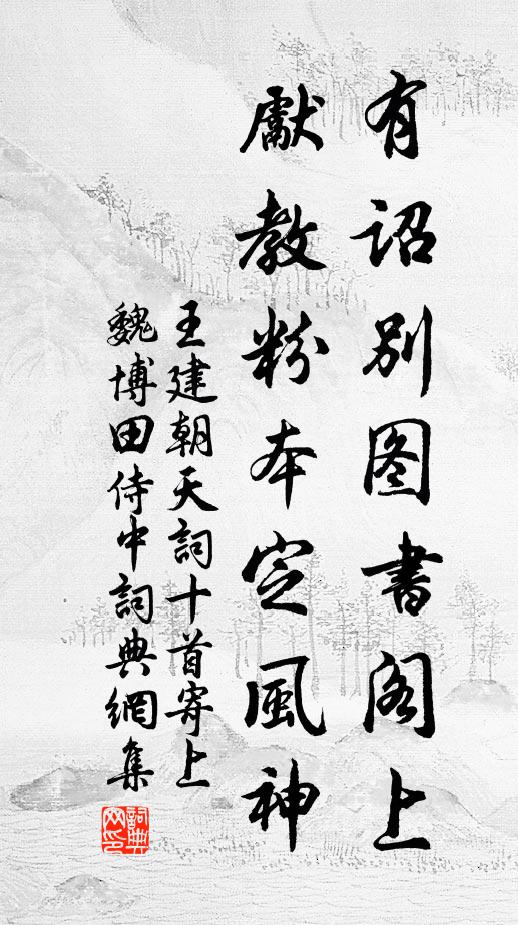 有诏别图书阁上
獻教粉本定風神
王建朝天詞十首寄上
魏博田侍中詞典網集
詞典网印